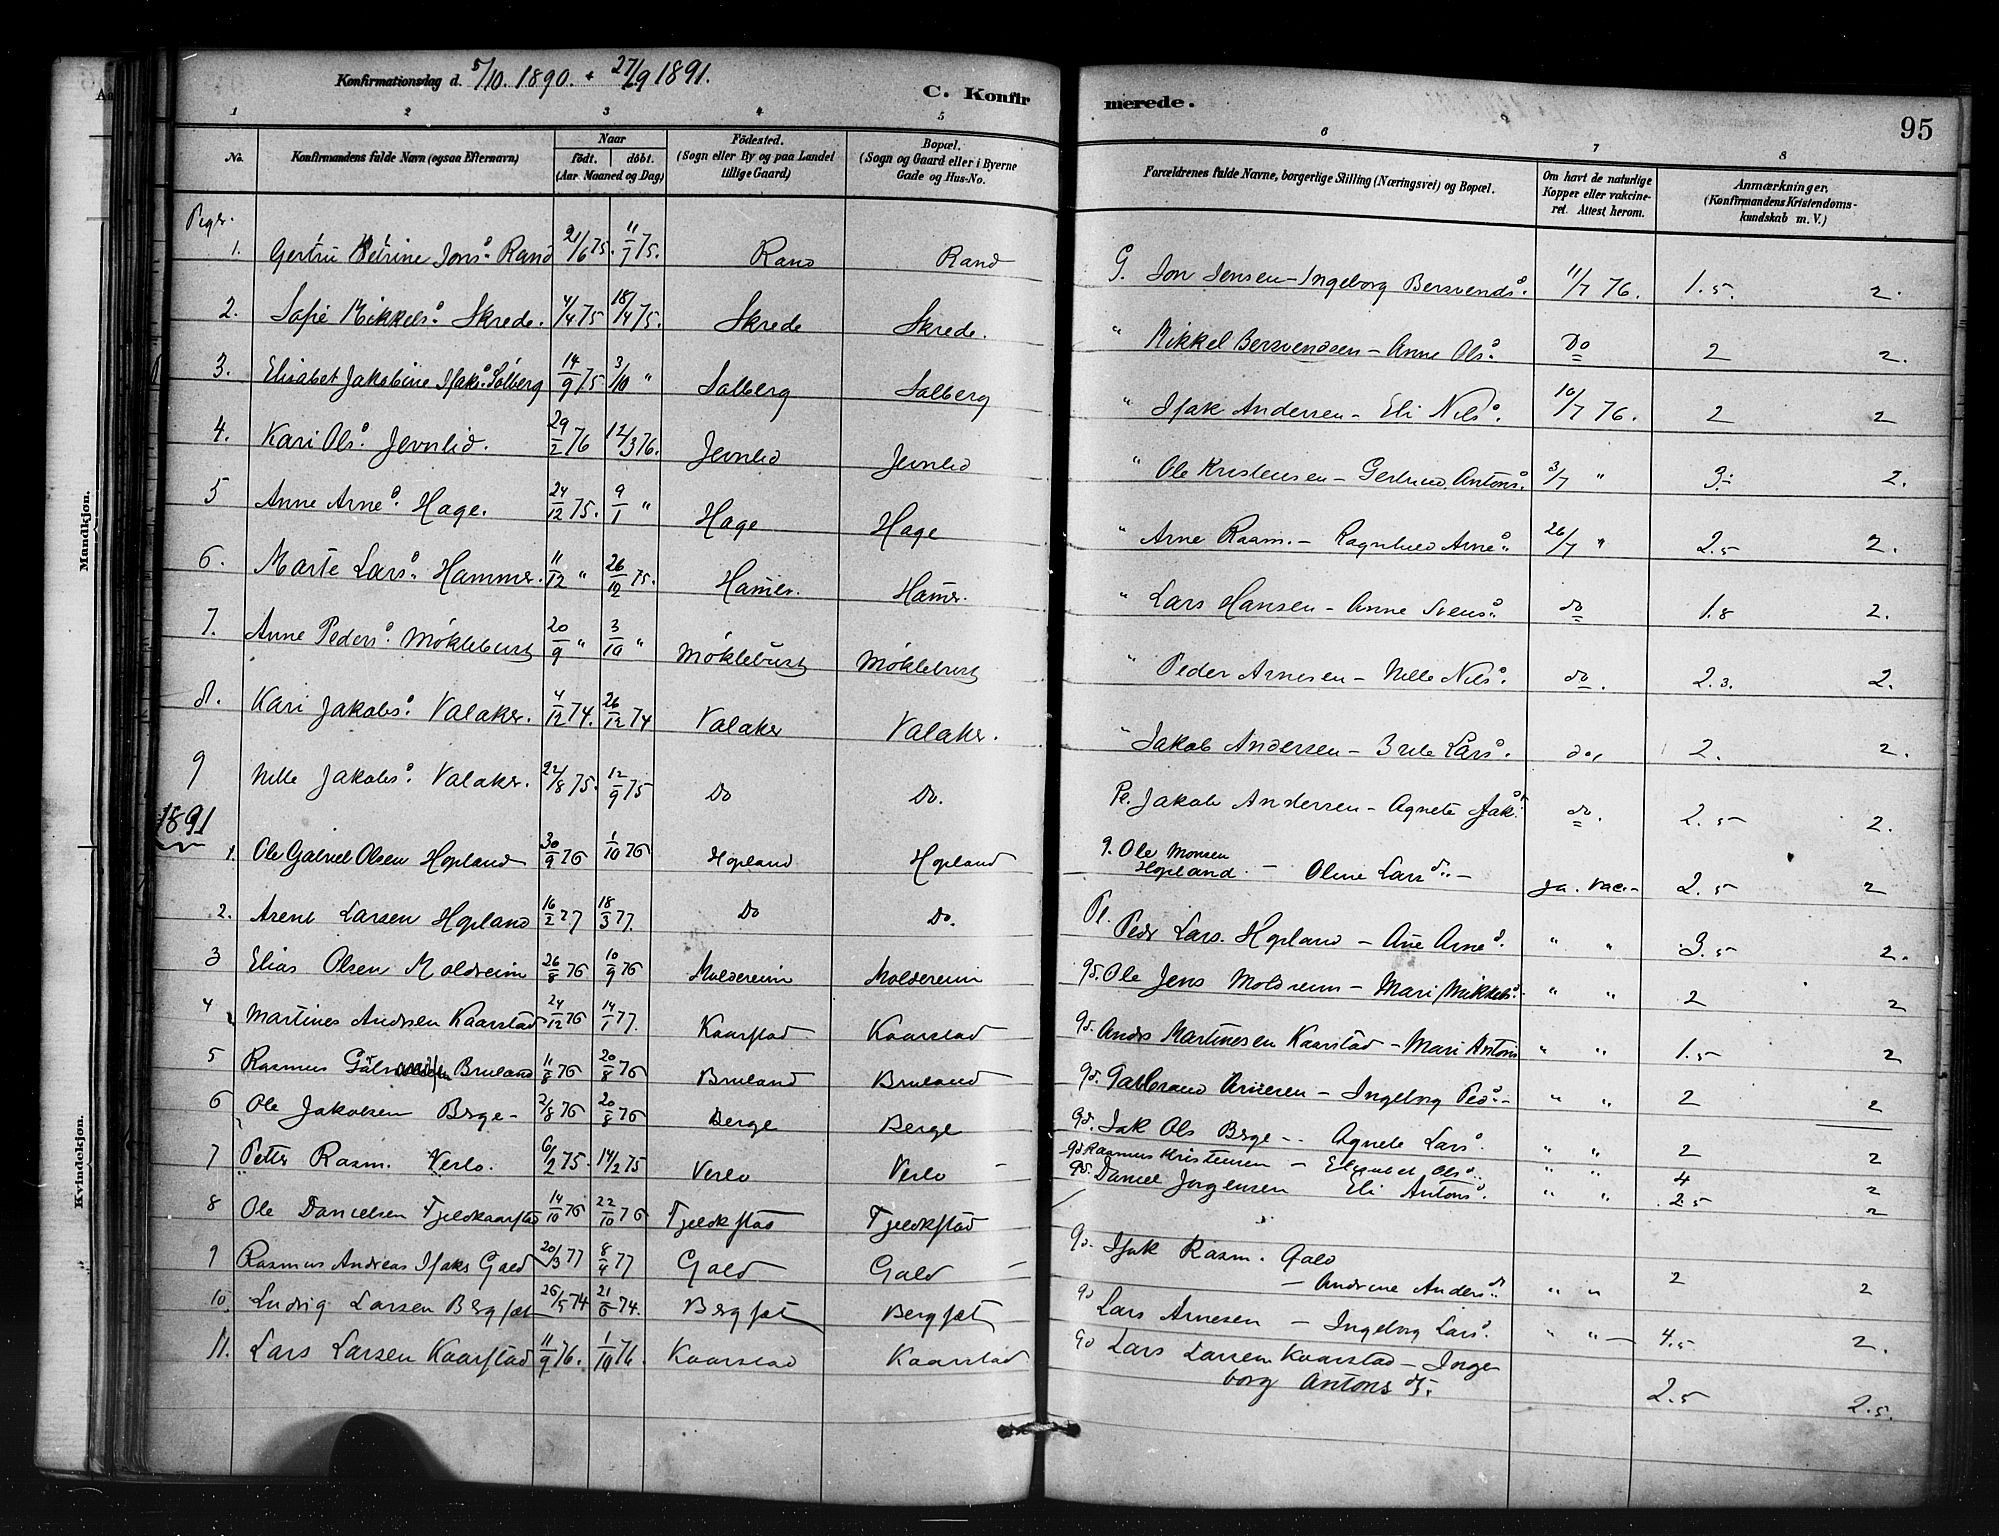 Konfirmationsdag d. 5/10. 1890. + 27/9 1891.
C. Konfirmerede.
95
1 2 3 4 5 6 7 8
No. Konfirmandens fulde Navn (ogsaa Efternavn) Naar födt. döbt. (Aar Maaned og Dag) Födested. (Sogn eller By og paa Landet tillige Gaard) Bopæl. (Sogn og Gaard eller i Byerne Gade og Hus-No. Forældrenes fulde Navne, borgerlige Stilling (Næringsvei) og Bopæl. Om havt de naturlige Kopper eller vakcineret. Attest herom. Anmærkninger. (Konfirmandens Kristendomskundskab m. V.)
Piger.
1. Gertru Petrine Jons. Rand 21/6 75. 11/7 75. Rand Rand G. Jon Jensen - Ingeborg Bersvends. 11/7 76. 1.5. 2.
2. Sofie Mikkels. Skrede. 4/4 75 18/4 75. Skrede Skrede. " Mikkel Bersvendsen - Anne Ols. Do 2 2.
3. Elisabet Jakobine Isaks. Solberg 14/9 75 3/10 " Solberg Solberg " Isak Andersen - Eli Nils. 10/7 76. 2 2
4. Kari Ols. Jevnlid. 29/2 76 12/3 76. Jevnlid Jevnlid " Ole Kristensen - Gertrud Antons. 3/7 " 3.- 2.
5 Anne Arne. Hage. 24/12 75. 9/1 " Hage Hage " Arne Rasm. - Ragnhild Arne. 26/7 " 2.5 2.
6. Marte Lars. Hammer. 11/12 " 26/12 75. Hamer. Hamer. " Lars Hansen - Anne Svens. do 1.8 2.
7. Anne Peders. Mökleburst 20/9 " 3/10 " Möklebust Möklebust " Peder Arnesen - Nille Nils. do. 2.3. 2.
8. Kari Jakobs. Valaker. 4/12 74. 26/12 74 Valaker Valaker. " Jakob Andersen - Brite Lars. do, 2. 2.
9 Nille Jakobs. Valaker. 22/8 75. 12/9 75 Do Do. Pl. Jakob Andersen - Agnete Isak. do. 2.5 2.
1891
1. Ole Gabriel Olsen Hopland 30/9 76 1/10 76 Hopland Hopland g. Ole Monsen Hopland. - Oline Lars d. - Ja. vac. - 2.5 2
2. Arent Larsen Hopland 16/2 77 18/3 77. Do Do. Pl. Pedr Lars. Hopland - Ane Arne d. " " 3.5 2.
3 Elias Olsen Moldreim 26/8 76 10/9 76 Moldereim Moldereim gd. Ole Jens Moldreim - Mari Mikkels. " " 2 2
4 Martines Andrsen Kaarstad 24/12 76 14/1 77. Kaarstad Kaarstad gd. Andrs Martinesen Kaarstad - Mari Antons " " 1.5 2
5 Rasmus Bruland 11/8 76 20/8 76 Bruland Bruland gd. Arnesen - Ingeborg Ped. - " " 2 2
6 Ole Jakobsen Brge - 2/8 76 20/8 76 Berge Berge gd. Jak Ols Brge - Agnete Lars. " " 2 2
7 Petter Rasm. Verlo. 6/2 75. 14/2 75 Verlo Verlo - gd Rasmus Kristensen - Elisabet Ols. " " 4 2
8 Ole Danielsen Fjeldkaarstad 14/10 76 22/10 76 Fjeldkstad Fjeldkstad gd. Daniel Jorgensen Eli Antons. " " 2.5 2
9 Rasmus Andreas Isaks Gald 20/3 77 8/4 77 Gald Gald - gd. Isak Rasm. Gald - Andrine Anders d. " " 2 2
10. Ludvig Larsen Bergset 26/5 74 21/6 74. Bergset Bergset gd Lars Arnesen - Ingeborg Lars. " " - 4.5 2.
11. Lars Larsen Kaarstad 11/9 76. 1/10 76. Kaarstad Kaarstad gd Lars Larsen Kaarstad - Inge
borg Antons d. 2.5 2.5.
Mandkjön.
Kvindekjön.